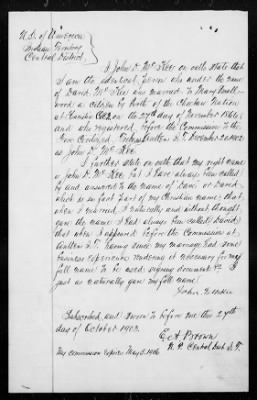 U.S. of America
Indian Territory
Central District
I John D. McKee on oath state that
I am the identical person who under the name
of David McKee was married to Mary Small-
wood a citizen by birth of the Choctaw Nation
at on the 27th day of November 1860,
and who registered before the Commission to the
Five Civilized Tribes at I.T. December 20 1902
as John D. McKee.
I further state on oath that my right name
is John D. McKee but I have always been called
by and answered to the name of Dave or David
which is in fact part of my Christian name; that
when I married, I naturally and without thought
gave the name I had always been called, David;
that when I appeared before the Commission at
I.T. having since my marriage had some
business experience rendering it necessary for my
full name to be used signing documents I
just as naturally gave my full name.
John D. McKee
Subscribed and sworn to before me this 27th
day of October 1903.
E. A. Brown
N.P. Central Dist. I.T.
My commission expires May 5 1906